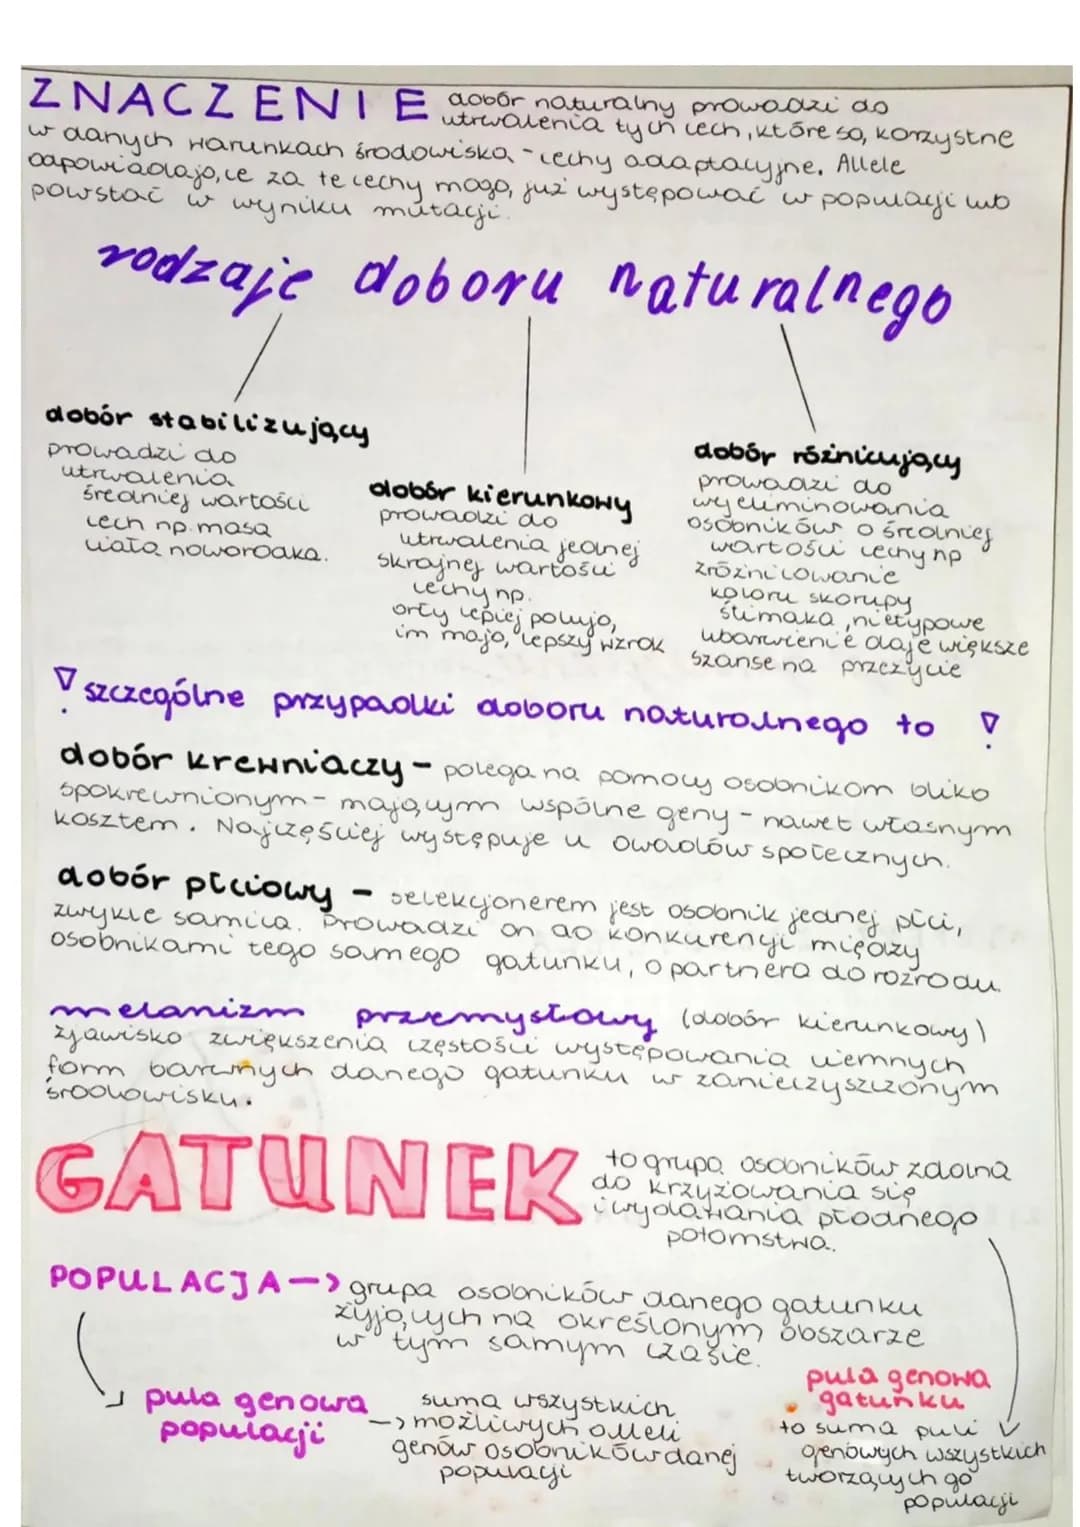 ZNACZENIE dobór naturalny prowadzi do
utrwalenia tych cech, które są korzystne
w danych warunkach środowiska - cechy adaptacyjne. Allele
odpowiadające za te cechy mogą już występować w populacji lub
powstać w wyniku mutacji.
rodzaje doboru naturalnego
dobór stabilizujący
prowadzi do
utrwalenia
średniej wartości
cech np. masa
ciała noworodka.
dobór kierunkowy
prowadzi do
utrwalenia jednej
skrajnej wartości
cechy np.
orły lepiej polują,
im mają lepszy wzrok
dobór różnicujący
prowadzi do
wyeliminowania
osobników o średniej
wartości cechy np
zróżnicowanie
koloru skorupy
ślimaka, nietypowe
ubarwienie daje większe
szanse na przeżycie
szczególne przypadki doboru naturalnego to
dobór krewniaczy - polega na pomocy osobnikom blisko
spokrewnionym - mającym wspólne geny - nawet własnym
kosztem. Najczęściej występuje u owadów społecznych.
dobór płciowy - selekcjonerem jest osobnik jednej płci,
zwykle samica. Prowadzi on do konkurencji między
osobnikami tego samego gatunku, o partnera do rozrodu.
melanizm przemysłowy (dobór kierunkowy)
zjawisko zwiększenia częstości występowania ciemnych
form barwnych danego gatunku w zanieczyszczonym
środowisku.
GATUNEK to grupa osobników zdolna
do krzyżowania się
i wydawania płodnego
potomstwa.
POPULACJA -> grupa osobników danego gatunku
żyjących na określonym obszarze
w tym samym czasie.
pula genowa
populacji
suma wszystkich
-> możliwych alleli
genów osobników danej
populacji
pula genowa
gatunku
to suma puli
genowych wszystkich
tworzących go
populacji